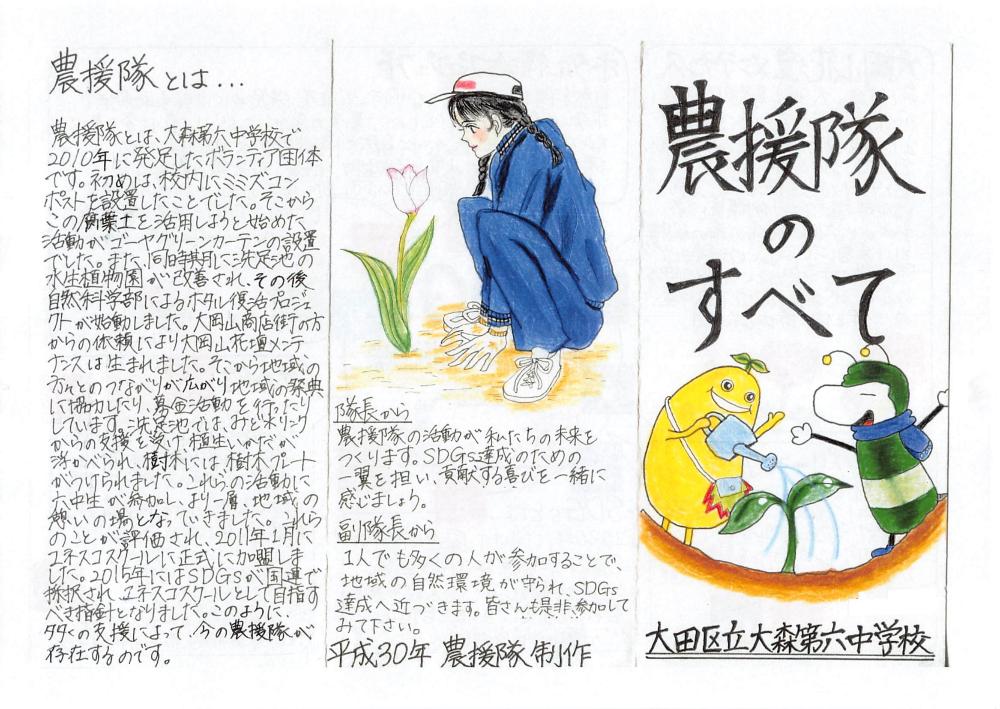 農援隊とは...
農援隊とは、大森第六中学校で
2010年に発足したボランティア団体
です。初めは、校内にミミズコン
ポストを設置したことでした。そこから
この腐葉土を活用しようと始めた
活動がゴーヤグリーンカーテンの設置
でした。また、同時期に洗足池の
水生植物園が改善され、その後
自然科学部によるホタル復活プロジェ
クトが始動しました。大岡山商店街の方
からの依頼により大岡山花壇メンテ
ナンスは生まれました。そこから地域の
方々とのつながりが広がり地域の祭典
に協力したり、募金活動を行ったり
しています。洗足池では、おど水リンク
からの支援を受け、植生いかだが
浮かべられ、樹木には、樹木プレート
がつけられました。これらの活動に
六中生が参加し、より一層、地域の
憩いの場となっていきました。これら
のことが評価され、2011年1月に
ユネスコスクールに正式に加盟しま
した。2015年にはSDGsが国連で
採択され、ユネスコスクールとして目指す
べき指針となりました。このように、
多くの支援によって、今の農援隊が
存在するのです。
隊長から
農援隊の活動が私たちの未来を
つくります。SDGs達成のための
一翼を担い、貢献する喜びを一緒に
感じましょう。
副隊長から
1人でも多くの人が参加することで、
地域の自然環境が守られ、SDGs
達成へ近づきます。皆さんも是非参加して
みて下さい。
平成30年 農援隊 制作
農援隊
の
すべて
大田区立大森第六中学校